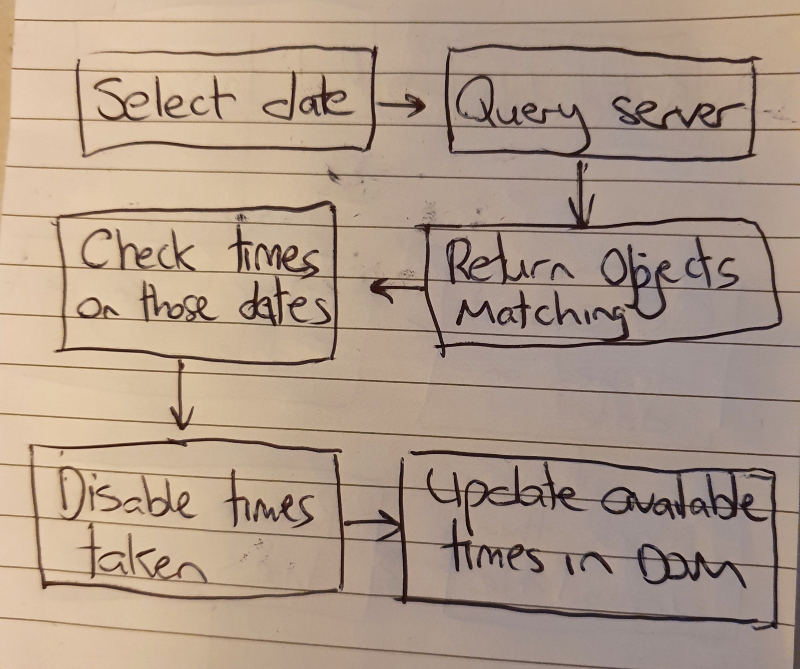 Select date
Query server
Return Objects
Matching
Check times
on those dates
Disable times
taken
Update available
times in DOM